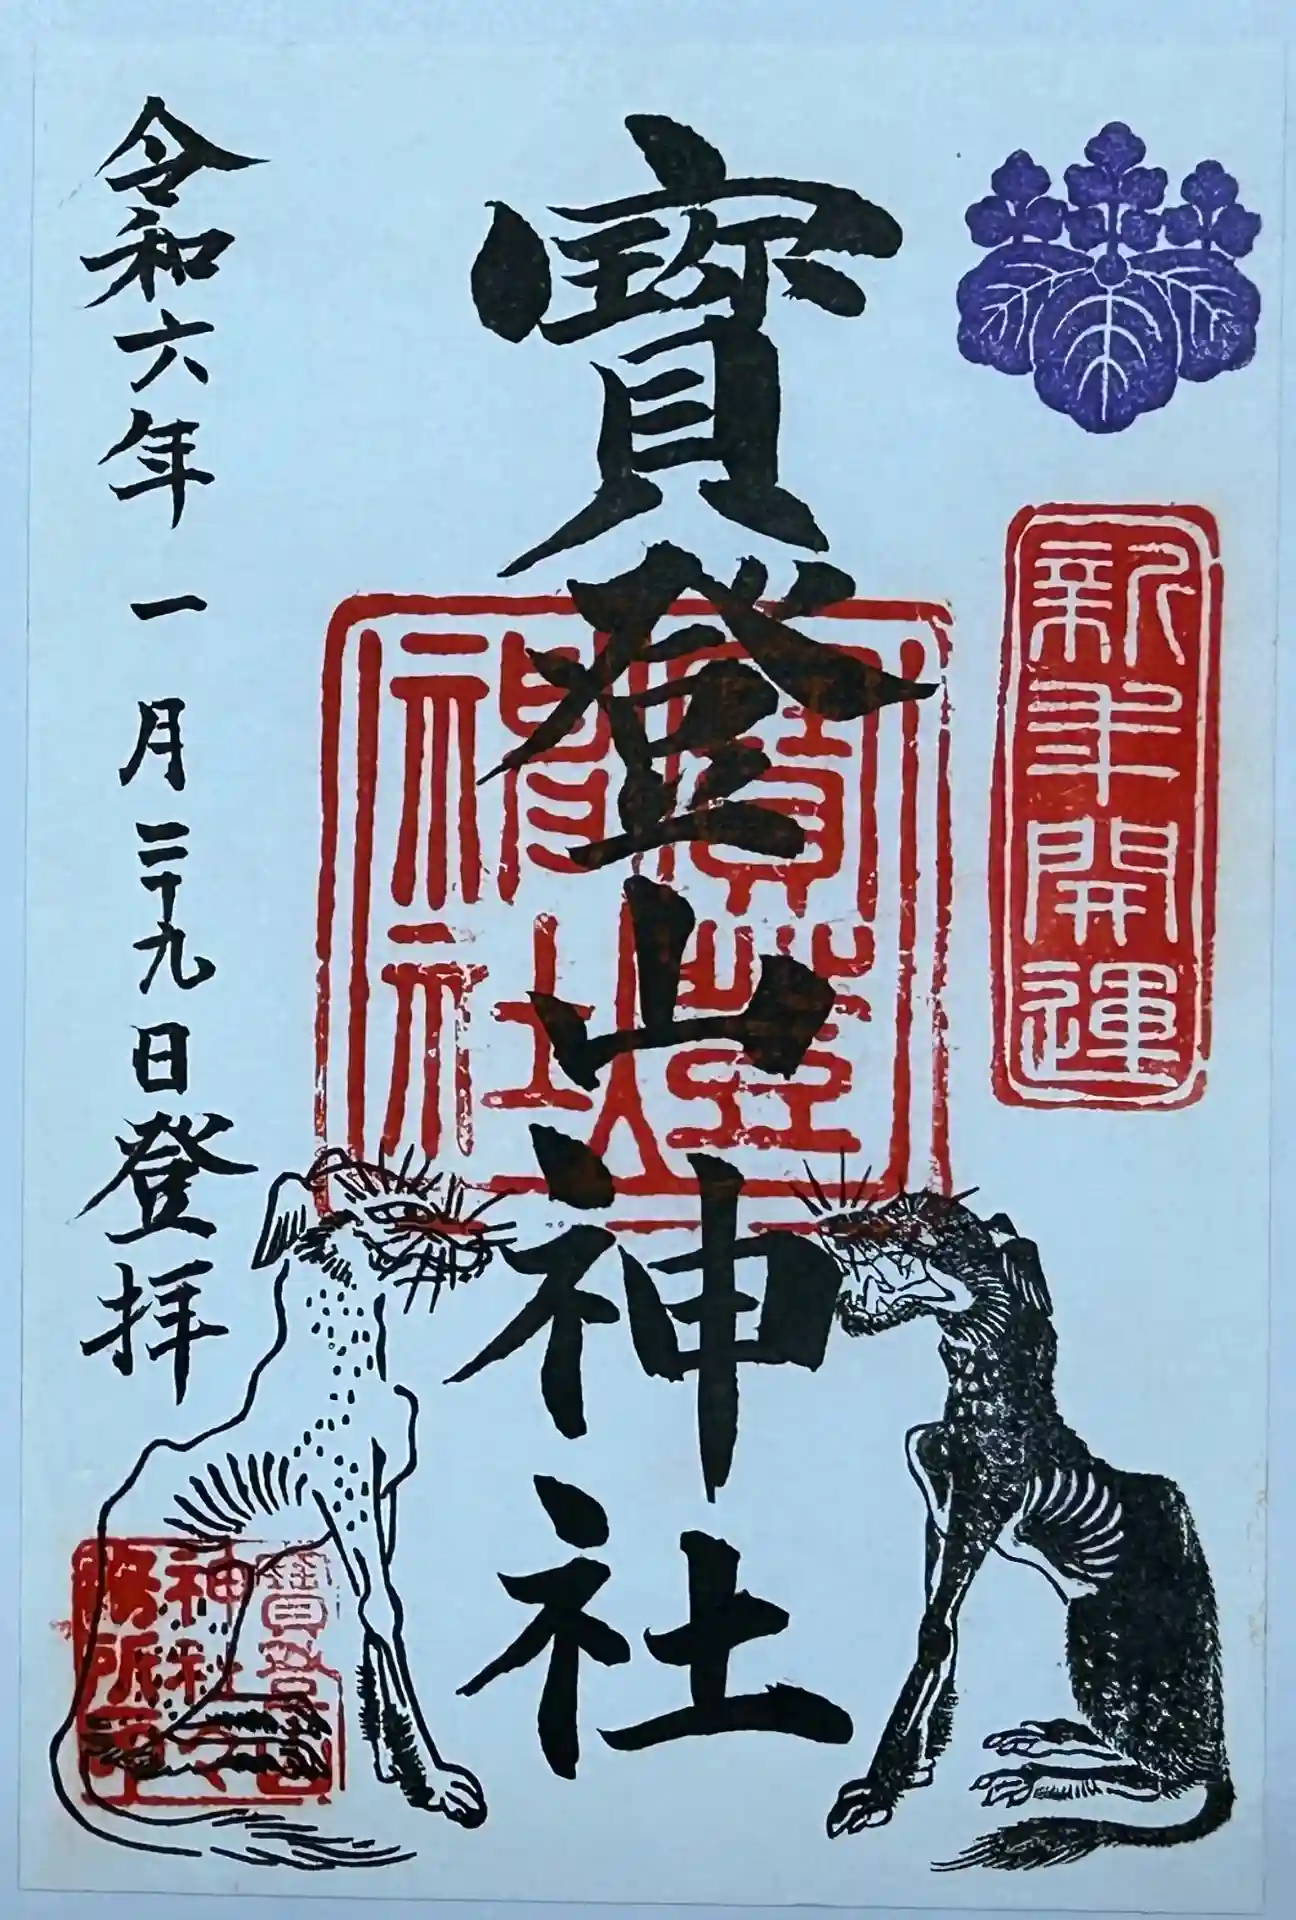 新年開運
寳登山神社
寳登山
神社
寳登山
神社社
務所印
令和六年一月二十九日登拝